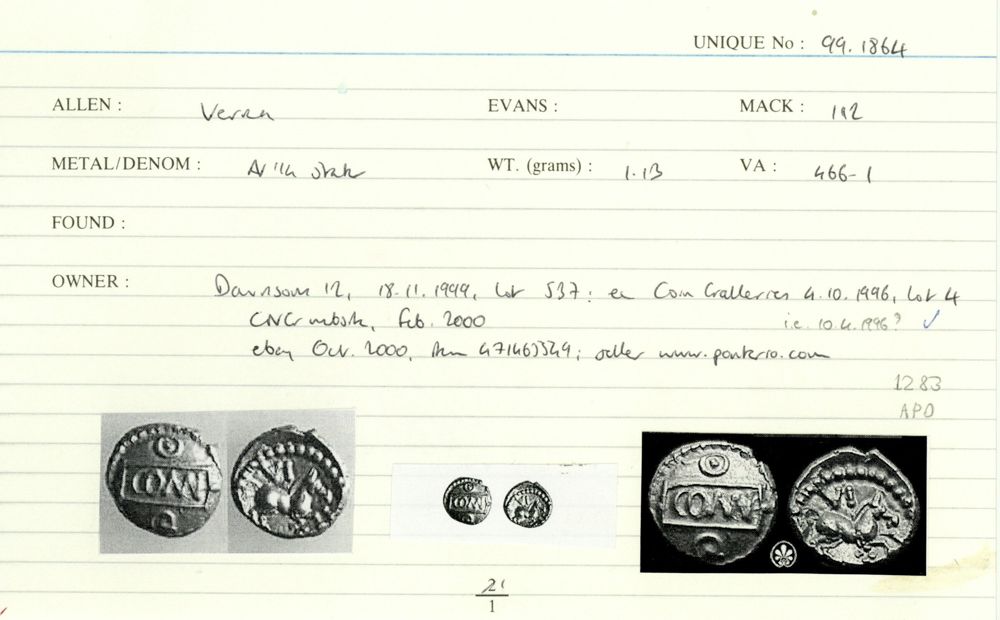 UNIQUE No : 99.1864
ALLEN : Verica EVANS : MACK : 112
METAL/DENOM : WT. (grams) : 1.13 VA : 466-1
FOUND :
OWNER : Davissons 12, 18.11.1999, Lot 537; ex Coin Galleries 4.10.1996, Lot 4
i.e. 10.4.1996?
CNG website, Feb. 2000
ebay Oct. 2000, item 471463549; seller www.ponterio.com
1283
APO
COMMF
VI
COMMF
21
1